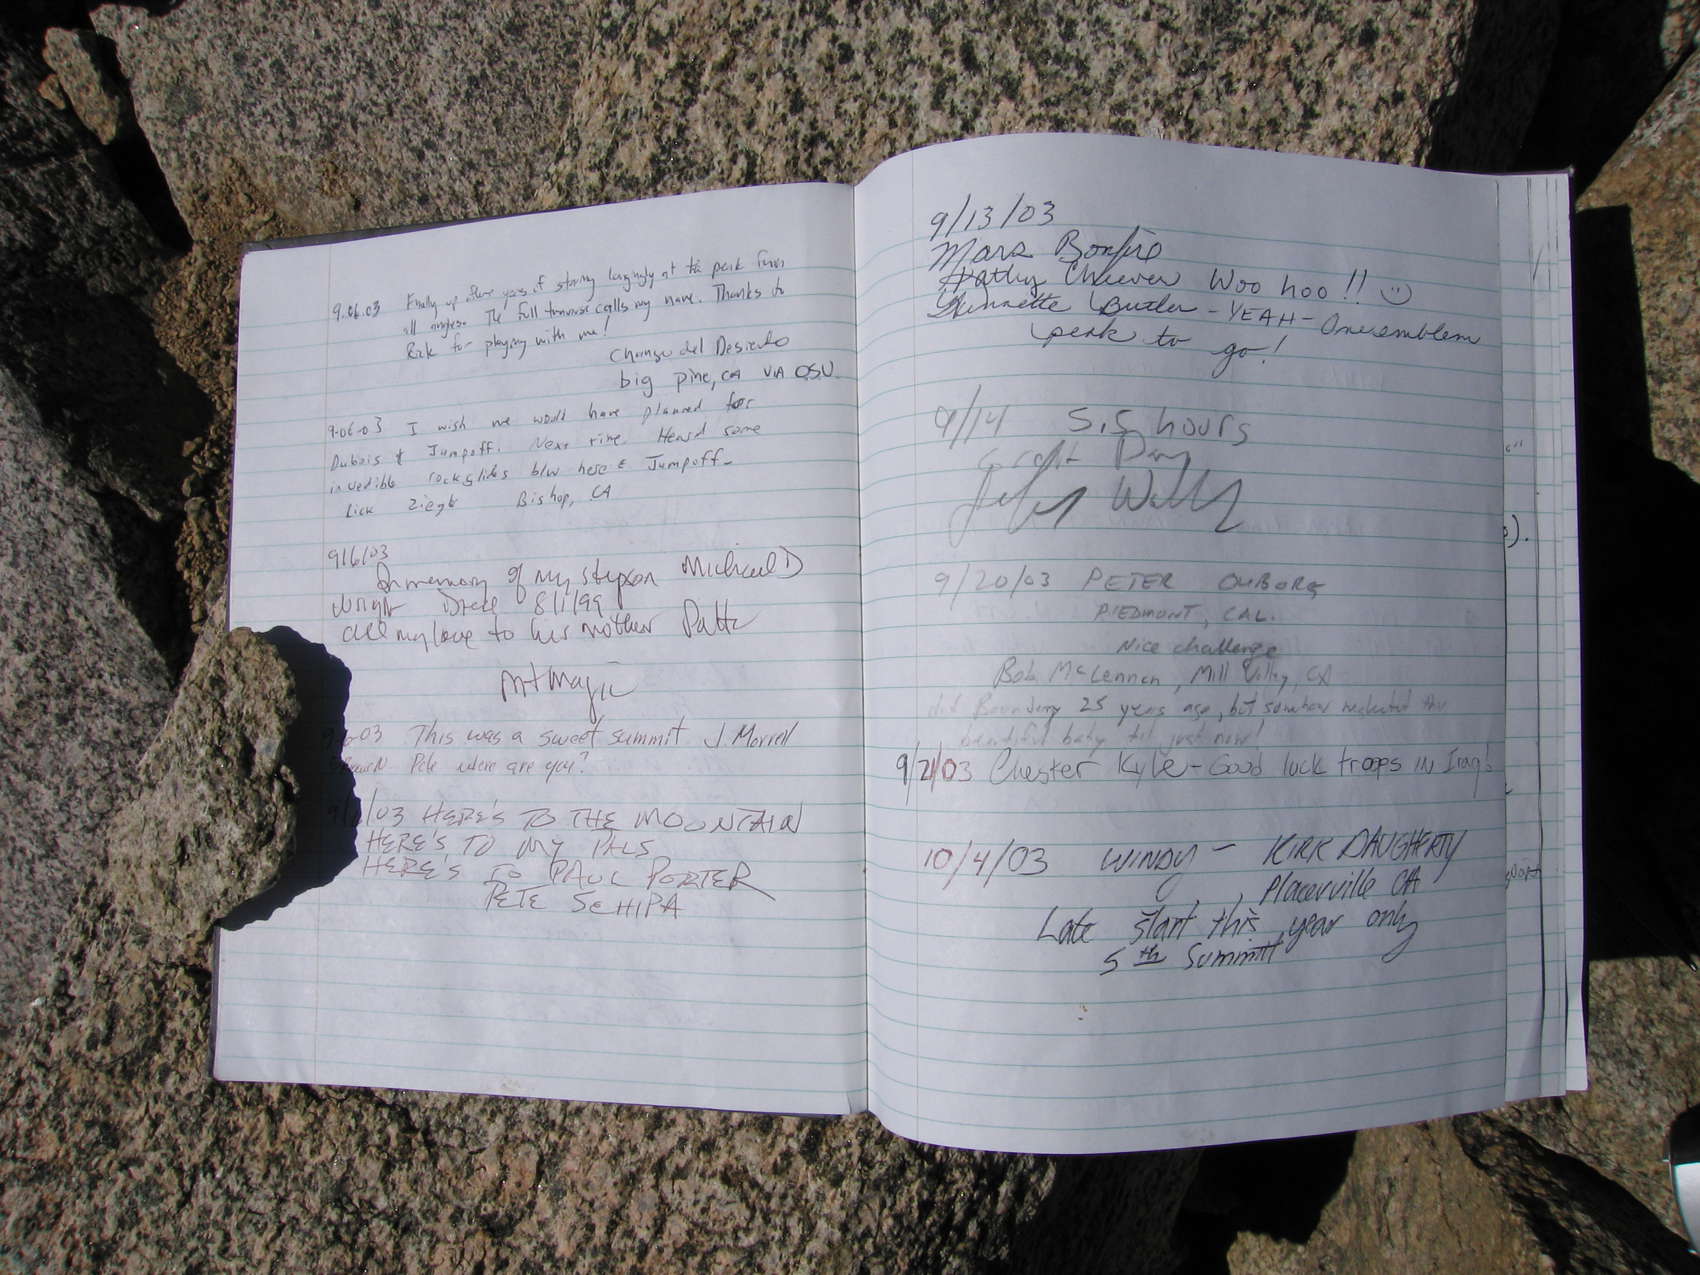 9.06.03 Finally up after years of staring longingly at the peak from
all angles. The full traverse calls my name. Thanks to
Rick for playing with me!
Chango del Desierto
big pine, CA VIA O.S.U.
9.06.03 I wish we would have planned for
Dubois & Jumpoff. Next time. Heard some
incredible rockslides b/w here & Jumpoff-
Bishop, CA
9/6/03
In memory of my stepson Michael D
Wright 8/1/99
All my love to his mother Patti
Art Magic
03 This was a sweet summit J. Morrell
Pete where are you?
03 HERE'S TO THE MOUNTAIN
HERE'S TO MY PALS
HERE'S TO PAUL PORTER
PETE SCHIPA
9/13/03
Mars Bonfire
Kathy Cheever Woo hoo!! ☺
Butler - YEAH - One emblem
peak to go!
9/14 5.5 hours
Great Day
9/20/03 PETER
PIEDMONT, CAL.
Nice challenge
Bob McLennan, Mill Valley, CA
did Boundary 25 years ago, but somehow neglected this
beautiful baby til just now!
9/21/03 Chester Kyle - Good luck troops in Iraq!
10/4/03 WINDY - KIRK DAUGHERTY
Placerville CA
Late start this year only
5th Summit